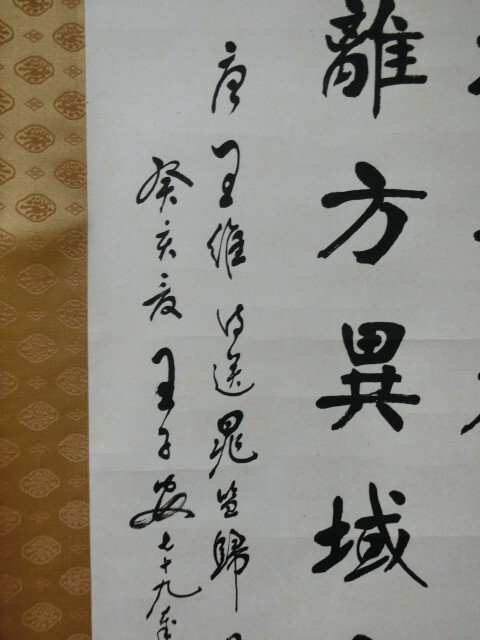 離方異域
唐王維詩送晁監歸
癸亥夏王子安七十九